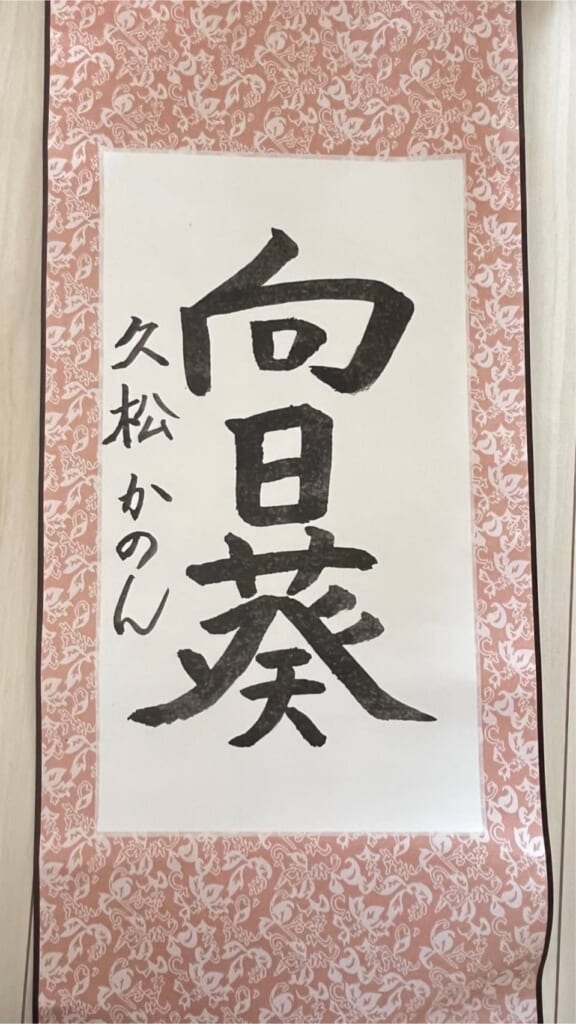 向日葵
久松かのん